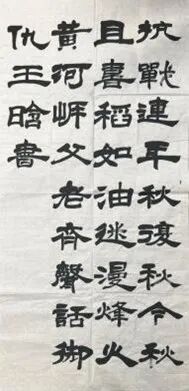 抗戰連年秋復秋今秋
且喜稻如油迷漫烽火
黃河岸父老齊聲話御
仇王晗書